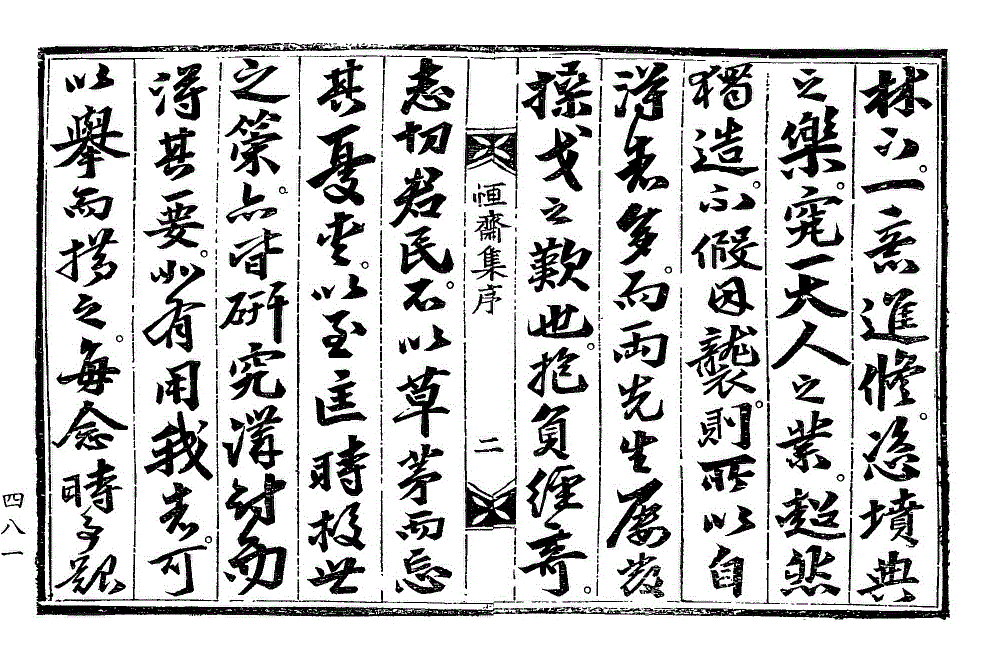 林下。一意進修。恣墳典
之樂。究天人之業。超然
獨造。不假因襲。則所以自
得者多。而兩先生屢發
操戈之歎也。抱負經奇。
恒齋集序 二
志切君民。不以草茅而忘
其憂責。以至匡時捄世
之策。亦皆研究講討而
得其要。如有用我者。可
以舉而措之。每念時多艱
四八一